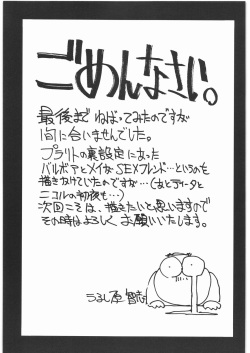 ごめんなさい。
最後までねばってみたのですが
間に合いませんでした。
プラリトの裏設定にあった
バルボアとメイがSEXフレンド…というのも
描きかけていたのですが…(あとディータと
ニコルの初夜も…)
次回こそは、描きたいと思いますので
その時はよろしくお願いいたします。
うるし原 智志